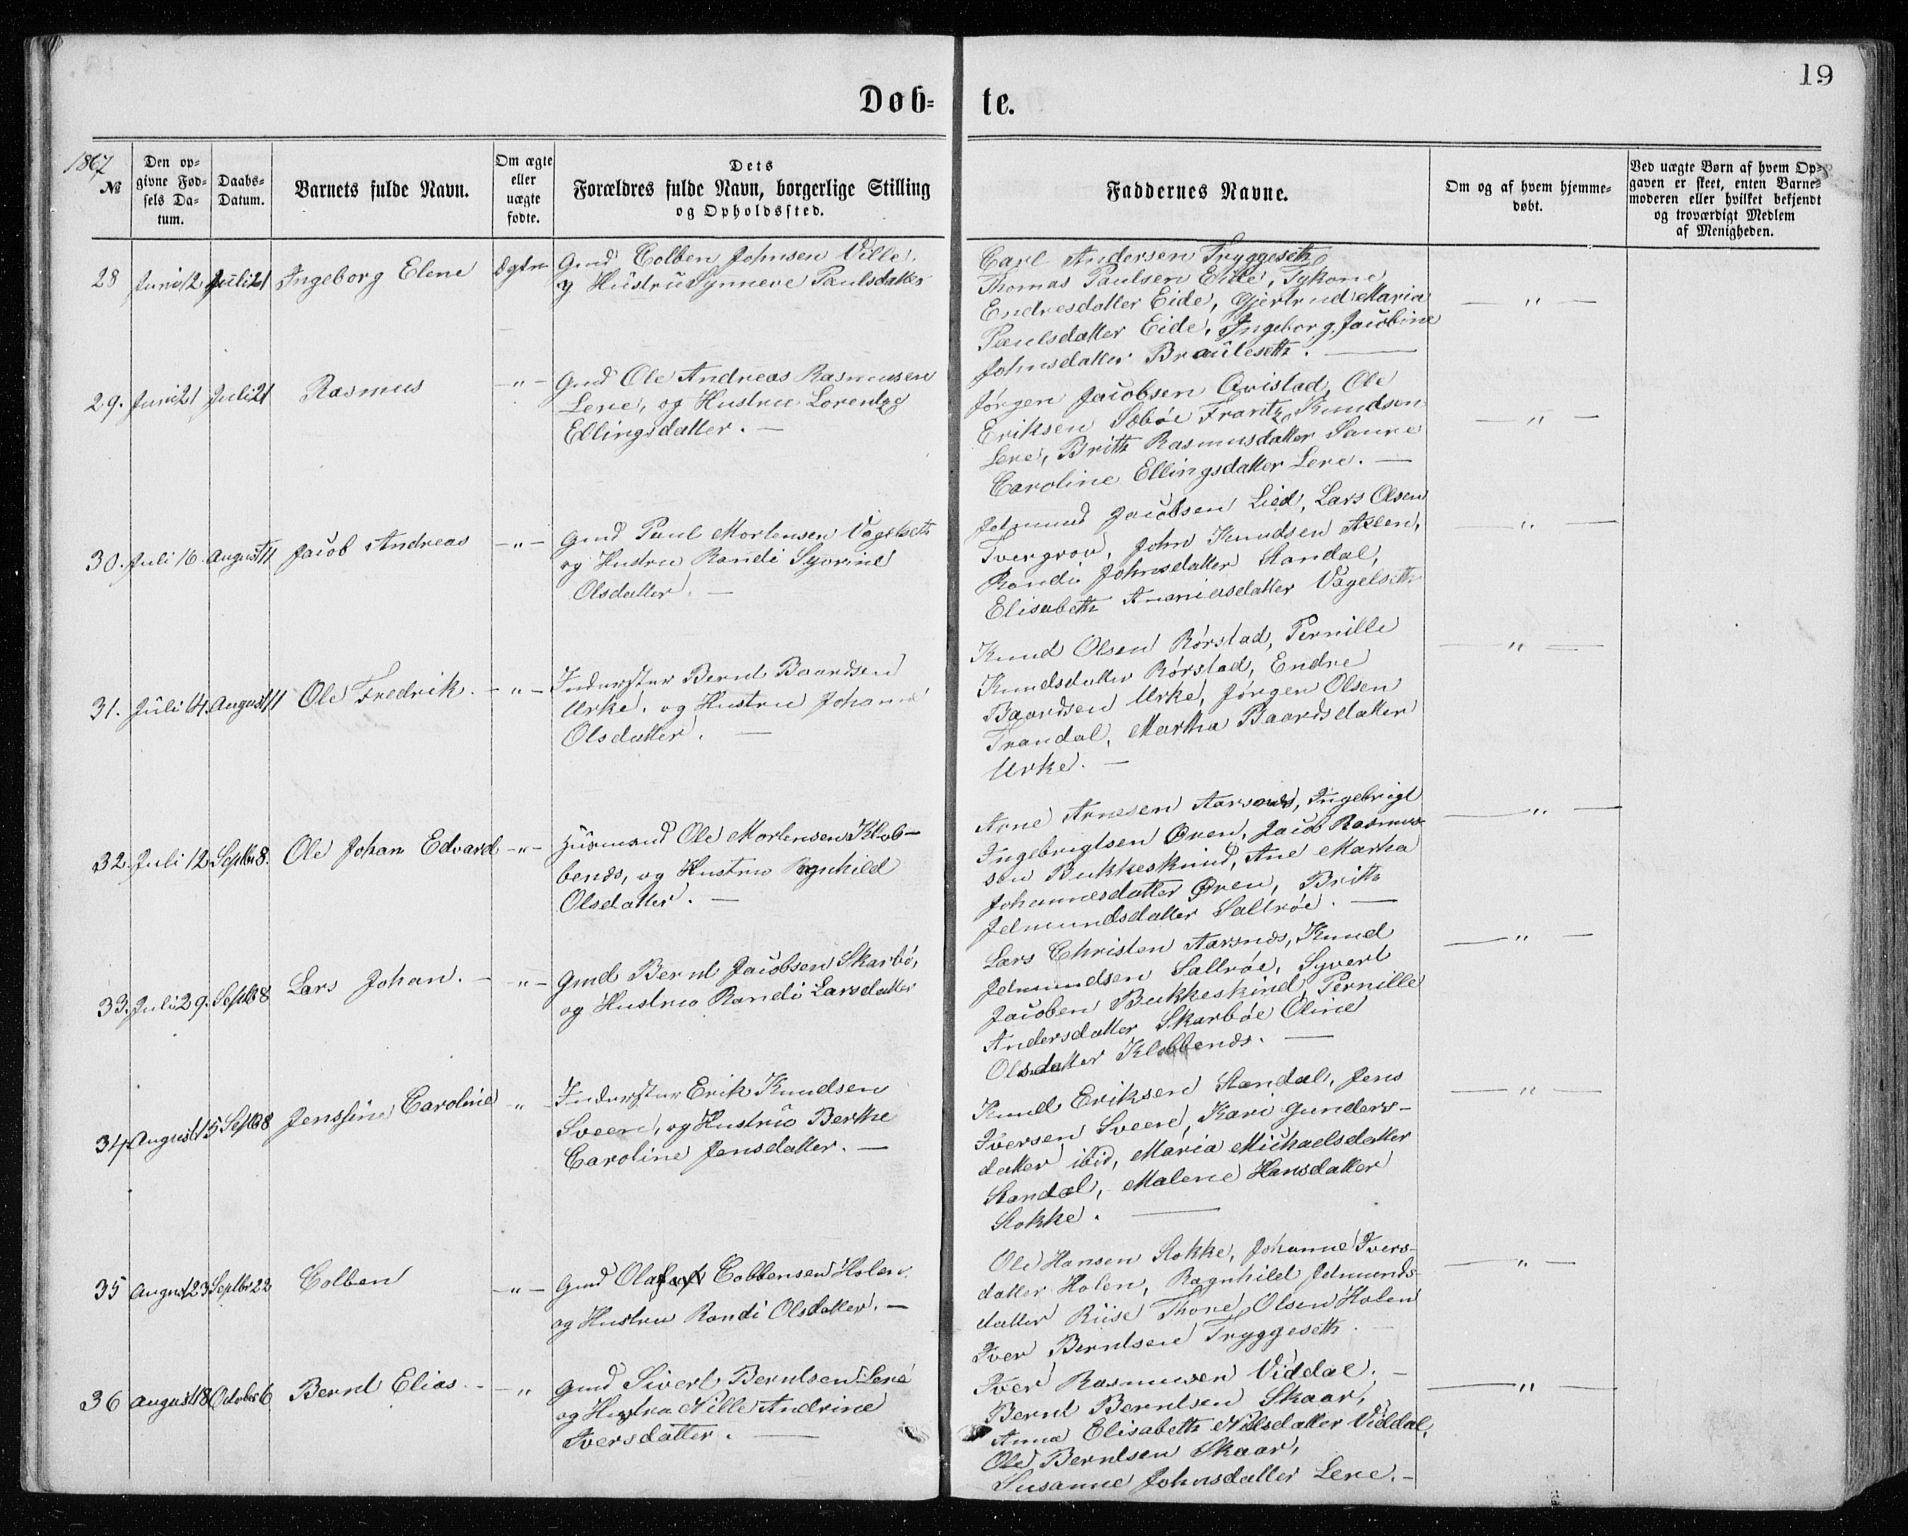 19
Døb- te.
1867
№
Den opgivne Fødsels Datum.
Daabs-Datum.
Barnets fulde Navn.
Om ægte eller uægte fødte.
Dets Forældres fulde Navn, borgerlige Stilling og Opholdssted.
Faddernes Navne.
Om og af hvem hjemmedøbt.
Ved uægte Børn af hvem Opgaven er skeet, enten Barnemoderen eller hvilket bekjendt og troværdigt Medlem af Menigheden.
28 Juni 12 Juli 21 Ingeborg Elene Ægte
Gmd Colben Johnsen Ville
og Hustru Synneve Paulsdatter
Carl Andersen Tryggeseth
Thomas Paulsen Eide, Tykone
Endresdatter Eide, Gjertrud Maria
Paulsdatter Eide, Ingeborg Jacobine
Johnsdatter Brautesetts. —
— " —
29. Juni 21 Juli 21 Rasmus — " —
Gmd Ole Andreas Rasmusen
Lere, og Hustru Lorentse
Ellingsdatter. —
Jørgen Jacobsen Qvistad, Ole
Eriksen Sæbøe Frantz Knudsen
Lere, Britth Rasmusdatter Saure
Caroline Ellingsdatter Lere. —
— " —
30. Juli 16. August 11 Jacob Andreas — " —
Gmd Paul Mortensen Vagelseth
og Hustru Randi Syvrine
Olsdatter. —
Jdmund Jacobsen Lied, Lars Olsen
Tvergrov, John Knudsen Aklen,
Randi Johnsdatter Standal,
Elisabeth Ananiasdatter Vagelseth
— " —
31. Juli 14. August 11 Ole Fredrik. — " —
Inderster Bernt Baardsen
Urke, og Hustru Johanne
Olsdatter. —
Knud Olsen Rørstad, Pernille
Knudsdatter Rørstad, Endre
Baardsen Urke, Jørgen Olsen
Trandal, Martha Baardsdatter
Urke. —
— " —
32. Juli 12. Septbr 8. Ole Johan Edvard — " —
Husmand Ole Mortensen Klob-
benes, og Hustru Ragnhild
Olsdatter. —
Arne Arnesen Aarsnes, Ingebrigt
Ingebrigtsen Øren, Jacob Rasmus-
sen Bukkeskind, Ane Martha
Johannesdatter Øren, Britth
Jdmundsdatter Saltrøe. —
— " —
33. Juli 29. Septbr 8 Lars Johan. — — " —
Gmd Bernt Jacobsen Skarbø,
og Hustru Randi Larsdatter
Lars Christen Aarsnes, Knud
Jdmundsen Saltrøe, Syvert
Jacoben Bukkeskind, Pernille
Andersdatter Skarbøe Oline
Olsdatter Klobbenes. —
— " —
34 August 15 Septbr 8 Jenssine Caroline "
Inderster Erik Knudsen
Sveen, og Hustru Berthe
Caroline Jensdatter. —
Knud Eriksen Standal, Jens
Iversen Sveen, Kari Gunders-
datter ibid, Maria Michaelsdatter
Standal, Malene Hansdatter
Stokke. —
— " —
35 August 23 Septbr 22 Colben — " —
Gmd Ola Colbensen Holen
og Hustru Randi Olsdatter. —
Ole Hansen Stokke, Johanne Ivers-
datter Holen, Ragnhild Jdmunds-
datter Riise Thone Olsen Holen
Iver Berntsen Tryggeseth. —
— " —
36 August 18 October 6 Bernt Elias. — — "
Gmd Sivert Berntsen Lere
og Hustru Nille Andrine
Iversdatter. —
Iver Rasmusen Viddal. —
Bernt Berntsen Skaar,
Anna Elisabeth Nilsdatter Viddal,
Ole Berntsen Skaar,
Susanne Johnsdatter Lere. —
— " —